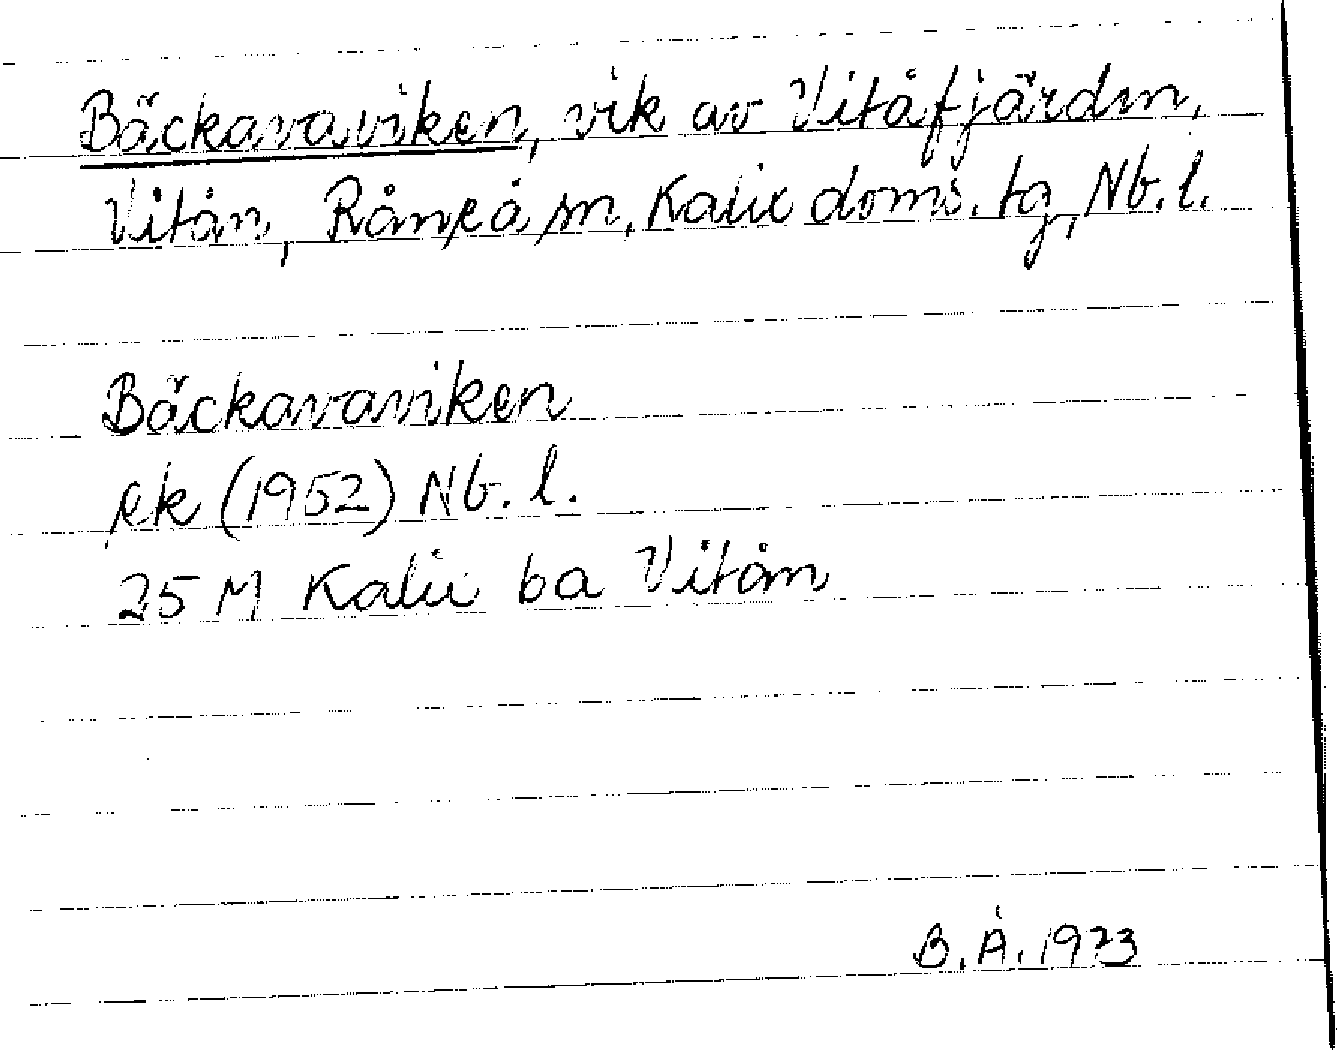 Bäckavaviken, vik av Vitåfjärden,
Vitån, Råneå sn, Kalix doms. tg, Nb. l.
Bäckavaviken
ek (1952) Nb. l.
25 M Kalix ba Vitån
B. Å. 1973